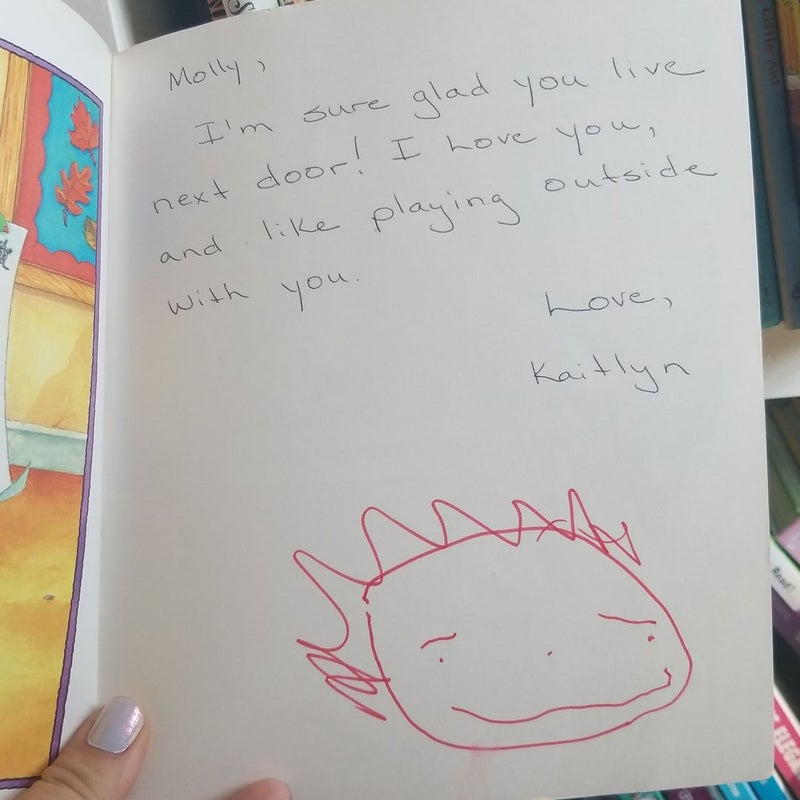 Molly,
I'm sure glad you live
next door! I Love you,
and like playing outside
with you.
Love,
Kaitlyn
Little Ant
Read!